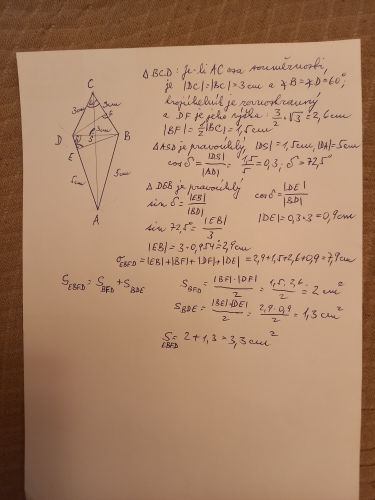 C
3cm 3cm
D B
S 3cm
E
5cm 5cm
A
Δ BCD: je-li AC osa souměrnosti,
je |DC|=|BC|=3cm a ∢B=∢D=60°;
trojúhelník je rovnostranný
a DF je jeho výška: 3/2·√3=2,6cm
|BF|=1/2|BC|=1,5cm
Δ ASD je pravoúhlý, |DS|=1,5cm, |DA|=5cm
cos δ=|DS|/|AD|=1,5/5=0,3; δ=72,5°
Δ DEB je pravoúhlý cos δ=|DE|/|BD|
sin δ=|EB|/|BD|
|DE|=0,3×3=0,9cm
sin 72,5°=|EB|/3
|EB|=3·0,954=2,9cm
σEBFD=|EB|+|BF|+|DF|+|DE|=2,9+1,5+2,6+0,9=7,9cm
SEBFD=SBFD+SBDE SBFD=|BF|·|DF|/2=1,5·2,6/2=2cm²
SBDE=|BE|·|DE|/2=2,9·0,9/2=1,3cm²
SEBFD=2+1,3=3,3cm²